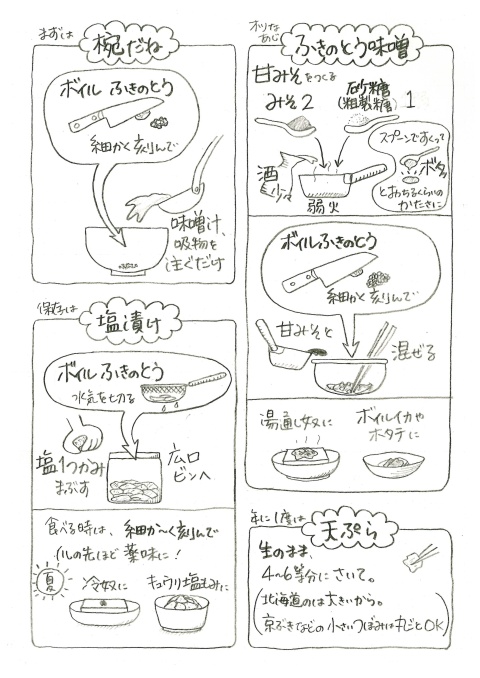 まずは
椀だね
ボイル ふきのとう
細かく刻んで
味噌汁、
吸物を
注ぐだけ
保存は
塩漬け
ボイル ふきのとう
水気を切る
塩1つかみ
まぶす
広口
ビンへ
食べる時は、細か〜く刻んで
小指の先ほど 薬味に!
夏
冷奴に
キュウリ塩もみに
オツな
あじ
ふきのとう味噌
甘みそをつくる
みそ2
砂糖
(粗製糖) 1
酒
少々
弱火
スプーンですくって
ボタッ
とおちるくらいの
かたさに
ボイルふきのとう
細かく刻んで
甘みそと
混ぜる
湯通し奴に
ボイルイカや
ホタテに
年に1度は
天ぷら
生のまま、
4〜6等分にさいて。
(北海道のは大きいから。
京ぶきなどの小さいつぼみは丸ごとOK)